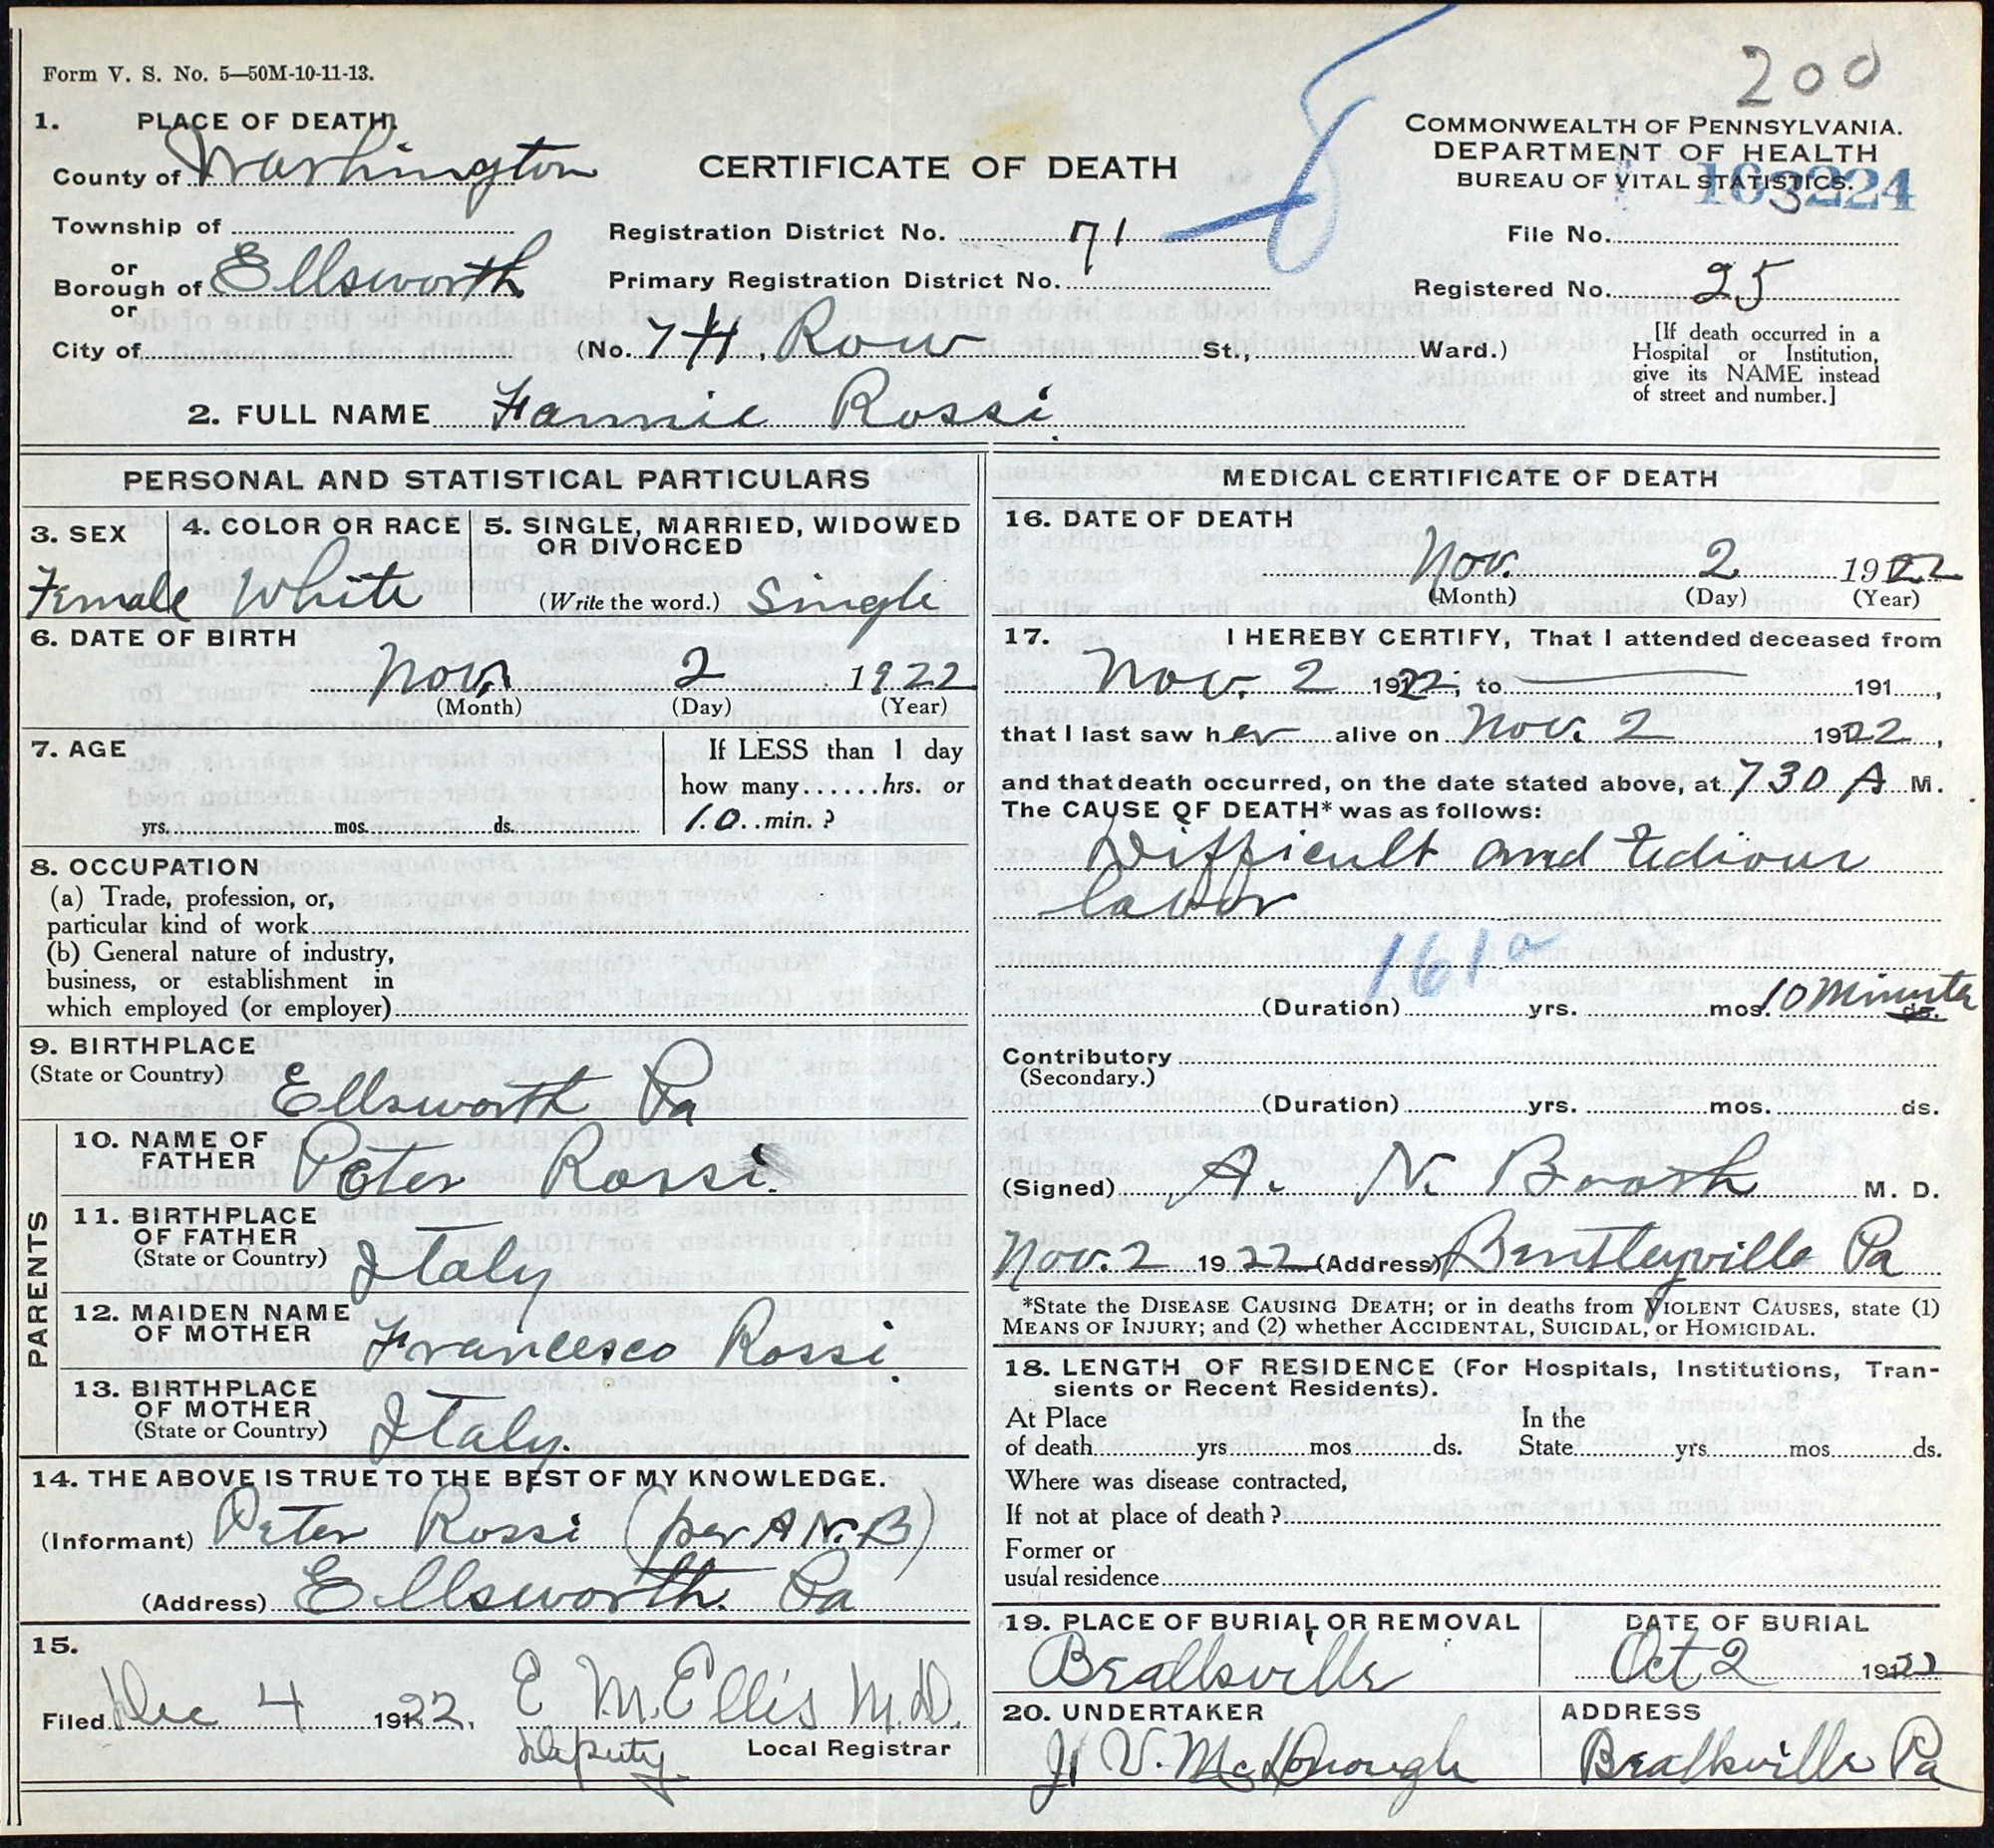 Form V. S. No. 5—50M-10-11-13.
200
1. PLACE OF DEATH
County of Washington
Township of
or
Borough of Ellsworth
or
City of
CERTIFICATE OF DEATH
Registration District No. 71
Primary Registration District No.
(No. 7 H, Row St., Ward.)
COMMONWEALTH OF PENNSYLVANIA.
DEPARTMENT OF HEALTH
BUREAU OF VITAL STATISTICS.
103224
File No.
Registered No. 25
[If death occurred in a
Hospital or Institution,
give its NAME instead
of street and number.]
2. FULL NAME Fannie Rossi
PERSONAL AND STATISTICAL PARTICULARS
3. SEX
Female
4. COLOR OR RACE
White
5. SINGLE, MARRIED, WIDOWED
OR DIVORCED
(Write the word.) Single
6. DATE OF BIRTH
Nov. 2 1922
(Month) (Day) (Year)
7. AGE
yrs. mos. ds.
If LESS than 1 day
how many......hrs. or
10 min.?
8. OCCUPATION
(a) Trade, profession, or,
particular kind of work
(b) General nature of industry,
business, or establishment in
which employed (or employer)
9. BIRTHPLACE
(State or Country) Ellsworth Pa
PARENTS
10. NAME OF
FATHER Peter Rossi
11. BIRTHPLACE
OF FATHER
(State or Country) Italy
12. MAIDEN NAME
OF MOTHER Francesco Rossi
13. BIRTHPLACE
OF MOTHER
(State or Country) Italy.
14. THE ABOVE IS TRUE TO THE BEST OF MY KNOWLEDGE.
(Informant) Peter Rossi (per A N. B)
(Address) Ellsworth. Pa
15.
Filed Dec 4 1922, E M. Ellis M.D.
Deputy Local Registrar
MEDICAL CERTIFICATE OF DEATH
16. DATE OF DEATH
Nov. 2 1922
(Month) (Day) (Year)
17. I HEREBY CERTIFY, That I attended deceased from
Nov. 2 1922, to 191 ,
that I last saw her alive on Nov. 2 1922,
and that death occurred, on the date stated above, at 730 A M.
The CAUSE OF DEATH* was as follows:
Difficult and tedious
labor
161a
(Duration) yrs. mos. 10 Minutes ds.
Contributory
(Secondary.)
(Duration) yrs. mos. ds.
(Signed) A. N. Booth M. D.
Nov. 2 1922 (Address) Bentleyville Pa
*State the DISEASE CAUSING DEATH; or in deaths from VIOLENT CAUSES, state (1)
MEANS OF INJURY; and (2) whether ACCIDENTAL, SUICIDAL, or HOMICIDAL.
18. LENGTH OF RESIDENCE (For Hospitals, Institutions, Tran-
sients or Recent Residents).
At Place In the
of death yrs. mos. ds. State yrs. mos. ds.
Where was disease contracted,
If not at place of death?
Former or
usual residence
19. PLACE OF BURIAL OR REMOVAL
Beallsville
DATE OF BURIAL
Oct 2 1922
20. UNDERTAKER
V. McDonough
ADDRESS
Beallsville Pa